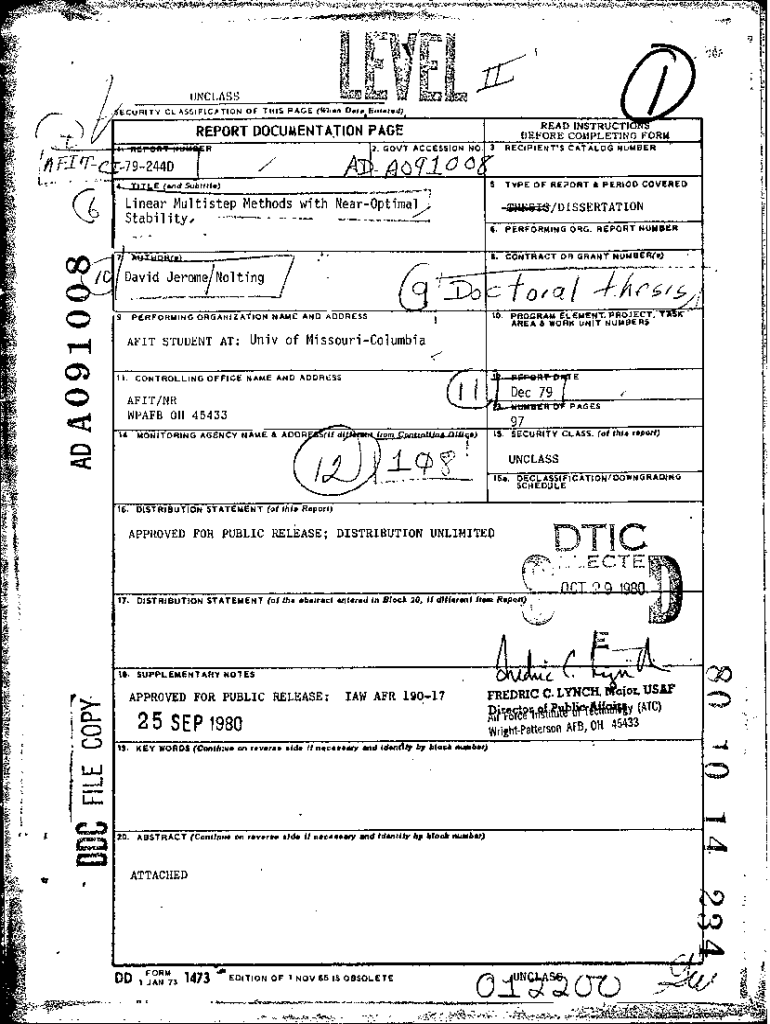 LEVEL II
1
UNCLASS
SECURITY CLASSIFICATION OF THIS PAGE (When Data Entered)
REPORT DOCUMENTATION PAGE
READ INSTRUCTIONS
BEFORE COMPLETING FORM
1. REPORT NUMBER
AFIT-CI-79-244D
2. GOVT ACCESSION NO.
AD-A091008
3 RECIPIENT'S CATALOG NUMBER
4. TITLE (and Subtitle)
6
Linear Multistep Methods with Near-Optimal
Stability,
5 TYPE OF REPORT & PERIOD COVERED
THESIS/DISSERTATION
6. PERFORMING ORG. REPORT NUMBER
7. AUTHOR(s)
10
David Jerome/Nolting
8. CONTRACT OR GRANT NUMBER(s)
9 Doctoral thesis,
9 PERFORMING ORGANIZATION NAME AND ADDRESS
AFIT STUDENT AT: Univ of Missouri-Columbia
10. PROGRAM ELEMENT. PROJECT, TASK
AREA & WORK UNIT NUMBERS
11. CONTROLLING OFFICE NAME AND ADDRESS
AFIT/NR
WPAFB OH 45433
11
12. REPORT DATE
Dec 79
13. NUMBER OF PAGES
97
14 MONITORING AGENCY NAME & ADDRESS(if different from Controlling Office)
12
108
15. SECURITY CLASS. (of this report)
UNCLASS
15a. DECLASSIFICATION/DOWNGRADING
SCHEDULE
16. DISTRIBUTION STATEMENT (of this Report)
APPROVED FOR PUBLIC RELEASE; DISTRIBUTION UNLIMITED
DTIC
ELECTE
OCT 29 1980
D
17. DISTRIBUTION STATEMENT (of the abstract entered in Block 20, if different from Report)
E
Fredric C. Lynch
18. SUPPLEMENTARY NOTES
APPROVED FOR PUBLIC RELEASE; IAW AFR 190-17
25 SEP 1980
FREDRIC C. LYNCH, Major, USAF
Director of Public Affairs
Air Force Institute of Technology (ATC)
Wright-Patterson AFB, OH 45433
19. KEY WORDS (Continue on reverse side if necessary and identify by block number)
20. ABSTRACT (Continue on reverse side if necessary and identify by block number)
ATTACHED
DD FORM 1 JAN 73 1473 EDITION OF 1 NOV 65 IS OBSOLETE
UNCLASS
012200
AD A091008
DDC FILE COPY
80 10 14 234